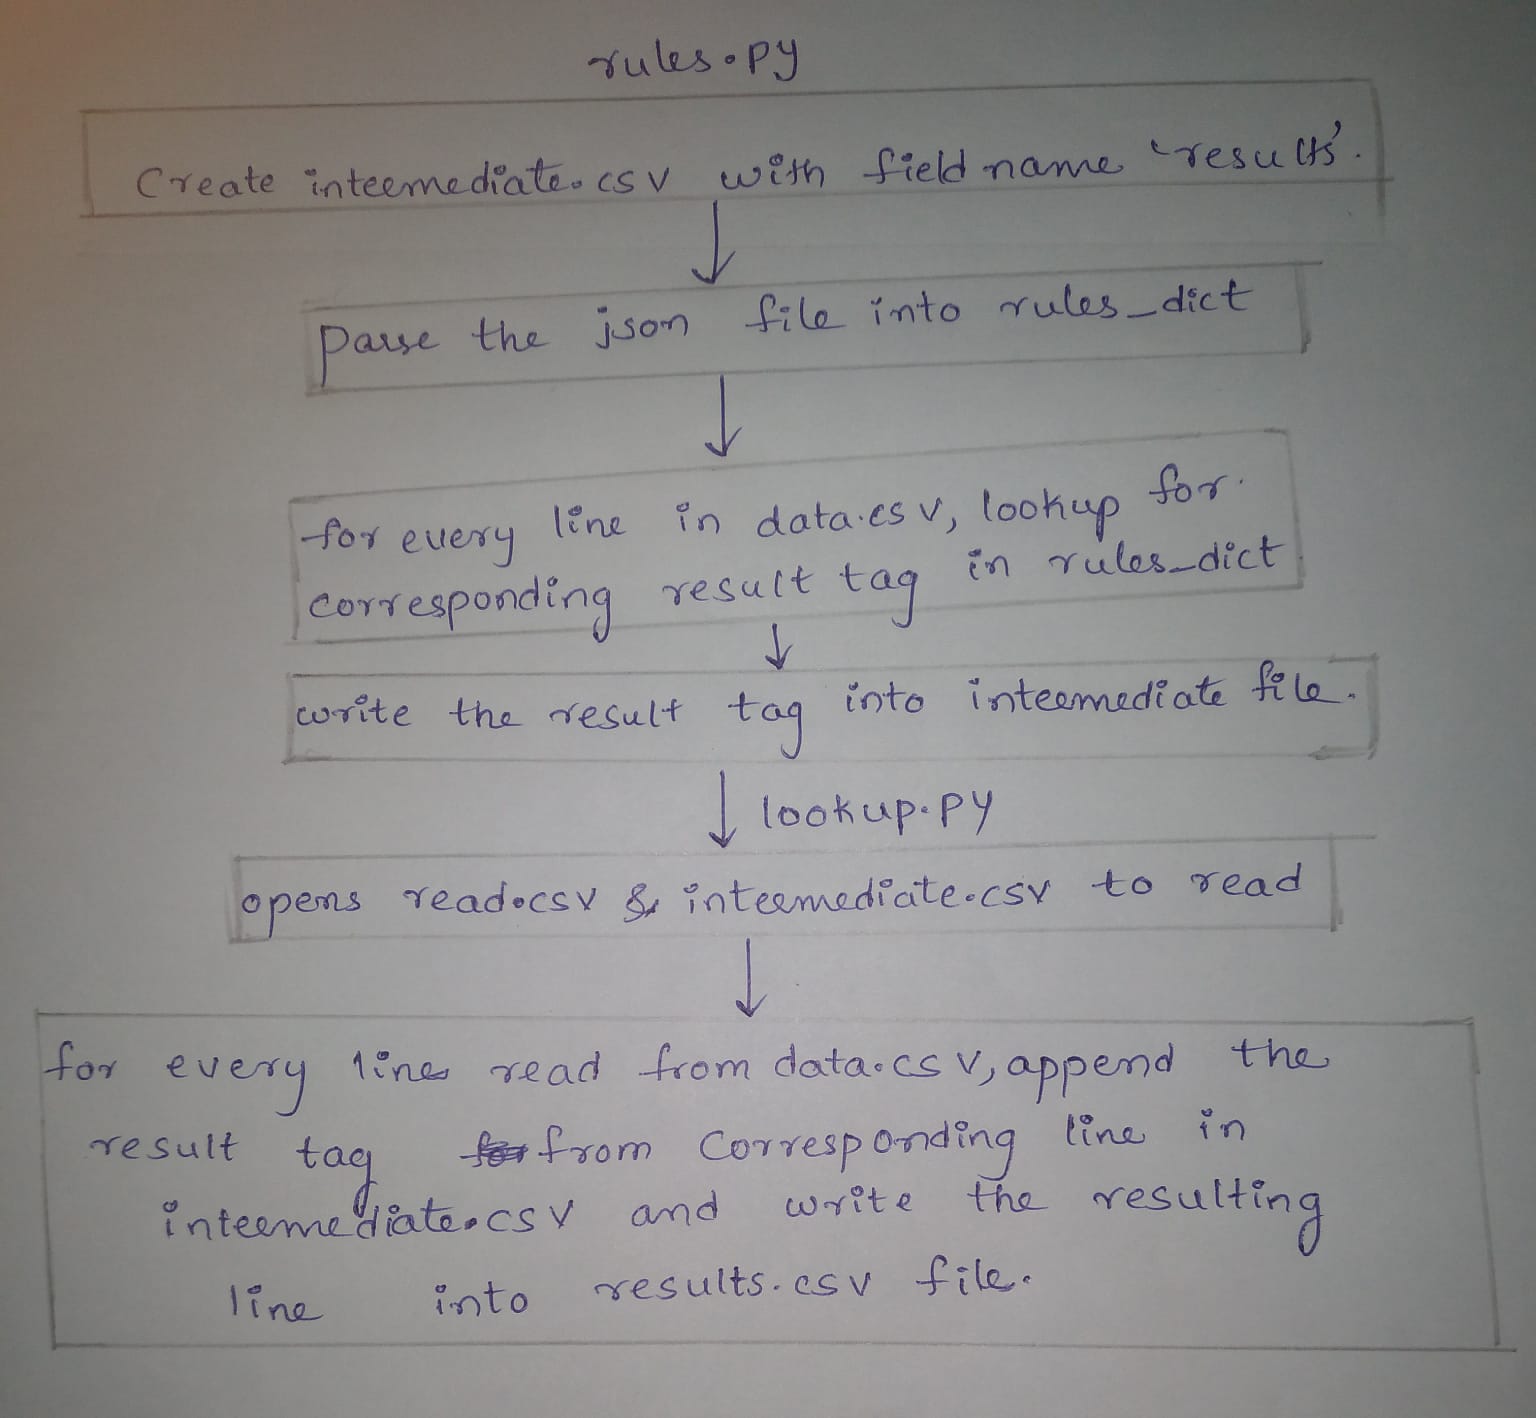 rules.py
Create intermediate.csv with field name 'results'.
parse the json file into rules_dict
for every line in data.csv, lookup for
corresponding result tag in rules_dict
write the result tag into intermediate file.
lookup.py
opens read.csv & intermediate.csv to read
for every line read from data.csv, append the
result tag from corresponding line in
intermediate.csv and write the resulting
line into results.csv file.